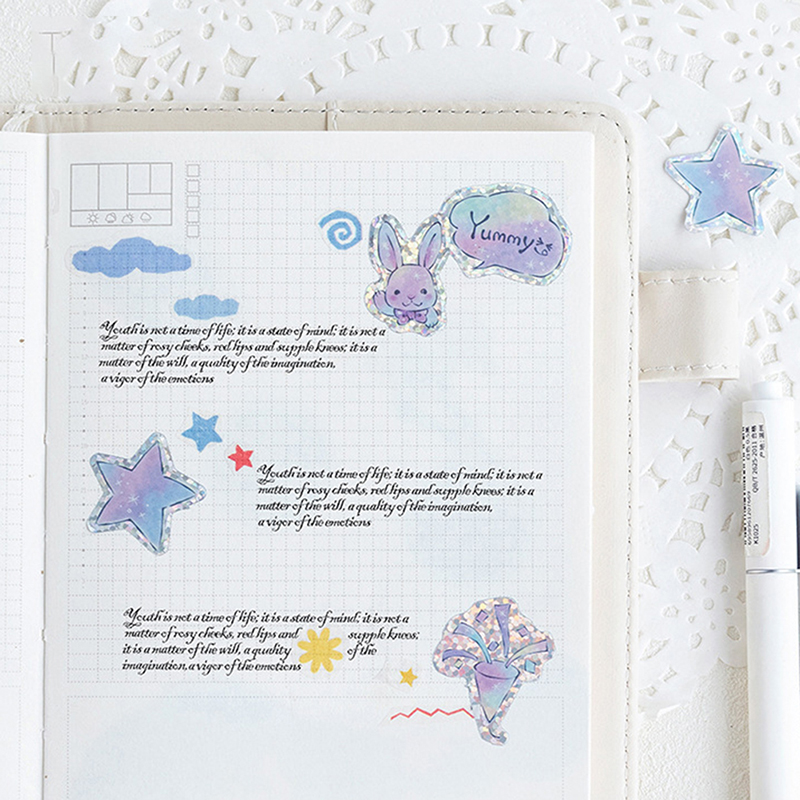 Yummy
Youth is not a time of life; it is a state of mind; it is not a
matter of rosy cheeks, red lips and supple knees; it is a
matter of the will, a quality of the imagination,
a vigor of the emotions
Youth is not a time of life; it is a state of mind; it is not a
matter of rosy cheeks, red lips and supple knees; it is a
matter of the will, a quality of the imagination,
a vigor of the emotions
Youth is not a time of life; it is a state of mind; it is not a
matter of rosy cheeks, red lips and supple knees;
it is a matter of the will, a quality of the
imagination, a vigor of the emotions
QB/T 2625-2011 合格
K1025